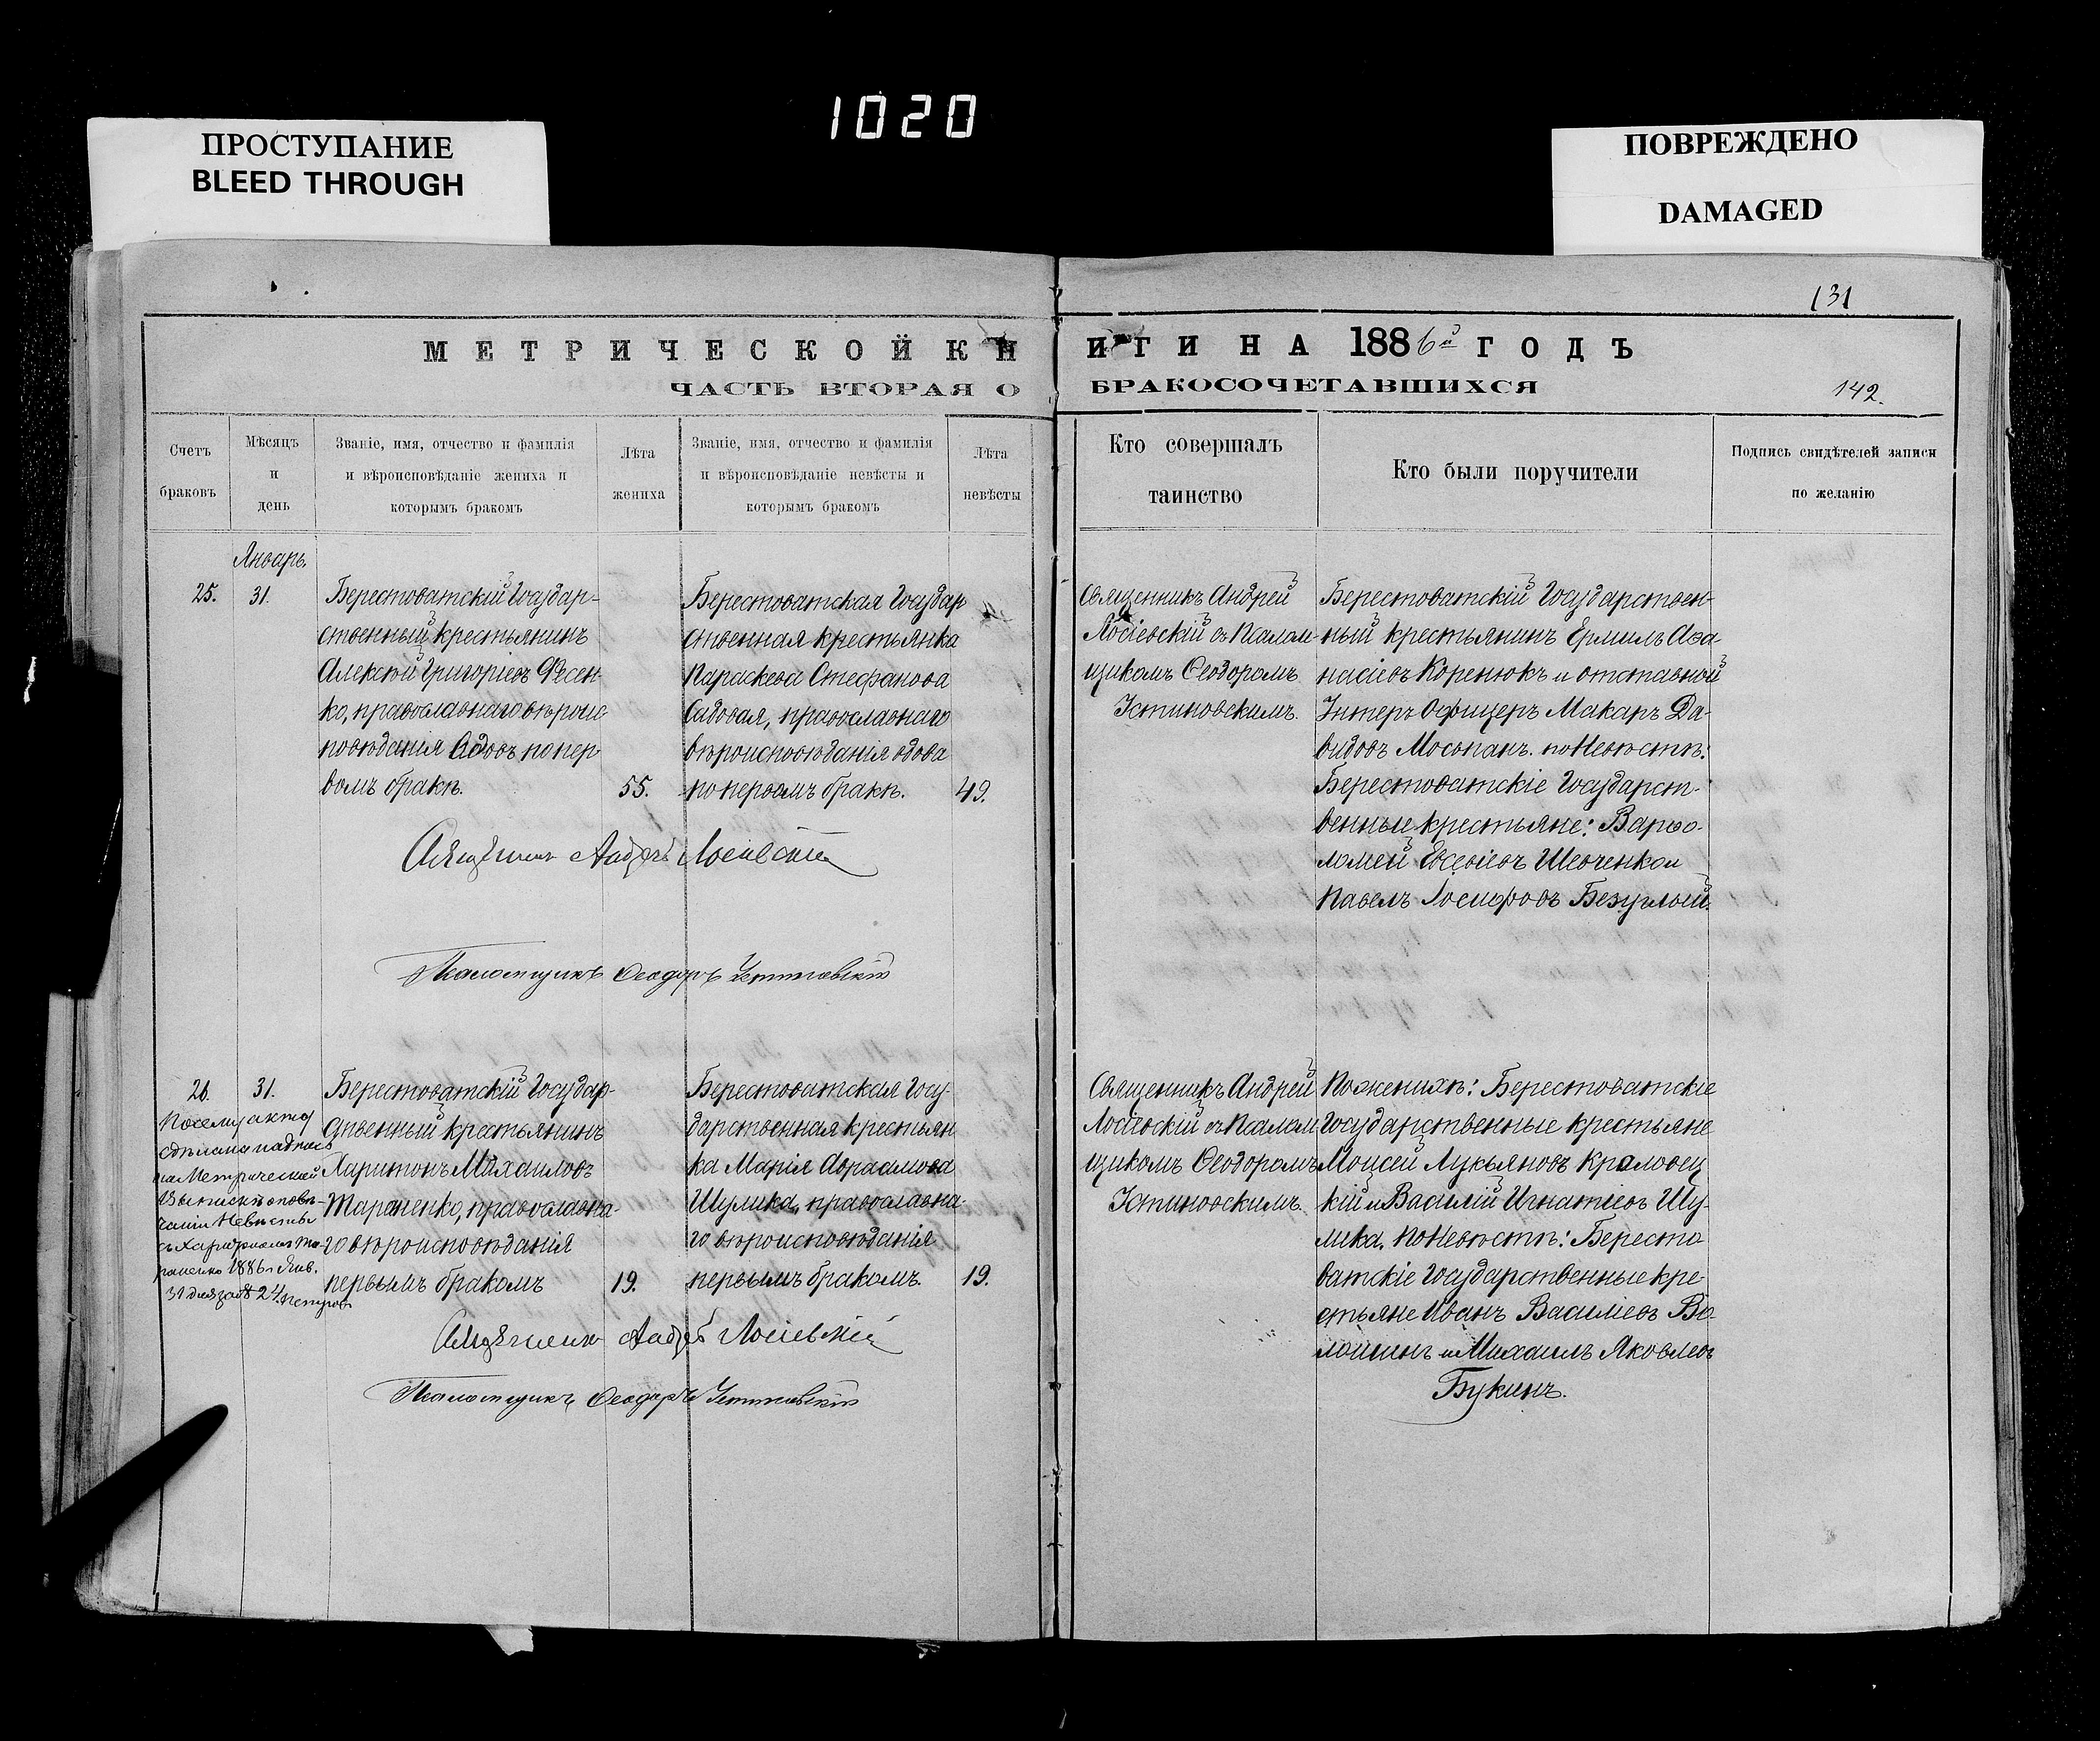 1020
ПРОСТУПАНИЕ
BLEED THROUGH
ПОВРЕЖДЕНО
DAMAGED
131
МЕТРИЧЕСКОЙ КНИГИ НА 1886й ГОДЪ
ЧАСТЬ ВТОРАЯ О БРАКОСОЧЕТАВШИХСЯ
142.
Счетъ
браковъ
Мѣсяцъ
и
день
Званіе, имя, отчество и фамилія
и вѣроисповѣданіе жениха и
которымъ бракомъ
Лѣта
жениха
Званіе, имя, отчество и фамилія
и вѣроисповѣданіе невѣсты и
которымъ бракомъ
Лѣта
невѣсты
Кто совершалъ
таинство
Кто были поручители
Подпись свидѣтелей записи
по желанію
Январь.
25.
31.
Берестоватскій Государ-
ственный крестьянинъ
Алексѣй Григоріевъ Фесен-
ко, православнаго вѣроис-
повѣданія вдовъ по пер-
вомъ бракѣ.
55.
Берестоватская Государ
ственная крестьянка
Параскева Стефанова
Садовая, православнаго
вѣроисповѣданія вдова
по первомъ бракѣ.
49.
Священникъ Андрей
Лосіевскій съ Псалом-
щикомъ Ѳеодоромъ
Устиновскимъ.
Берестоватскій Государствен-
ный крестьянинъ Ермилъ Аѳа-
насіевъ Коренюкъ и отставной
Унтеръ Офицеръ Макаръ Да-
видовъ Мосьпанъ. по Невѣстѣ:
Берестоватскіе Государст-
венные крестьяне: Варѳо-
ломей Евсевіевъ Шевченко и
Павелъ Іосифовъ Безуглый.
Священникъ Андрей Лосіевскій
Псаломщикъ Ѳеодоръ Устиновскій
26.
31.
По сему акту
сдѣлана надпись
на Метрической
Выпискѣ о повѣ-
чаніи Невѣсты
1886 г Янв.
31 дня за № 24.
Берестоватскій Государ-
ственный крестьянинъ
Харитонъ Михаиловъ
Тараненко, православна-
го вѣроисповѣданія
первымъ бракомъ
19.
Берестоватская Госу-
дарственная крестьян
ка Марія Авраамова
Шулика, православна-
го вѣроисповѣданія
первымъ бракомъ.
19.
Священникъ Андрей
Лосіевскій съ Псалом
щикомъ Ѳеодоромъ
Устиновскимъ.
По женихѣ: Берестоватскіе
Государственные крестьяне
Моисей Лукьяновъ Крамовец
кій и Василій Игнатіевъ Шу-
лика. По Невѣстѣ: Бересто
ватскіе Государственные кре-
стьяне Иванъ Василіевъ Во-
лошинъ и Михаилъ Яковлевъ
Букинъ.
Священникъ Андрей Лосіевскій
Псаломщикъ Ѳеодоръ Устиновскій